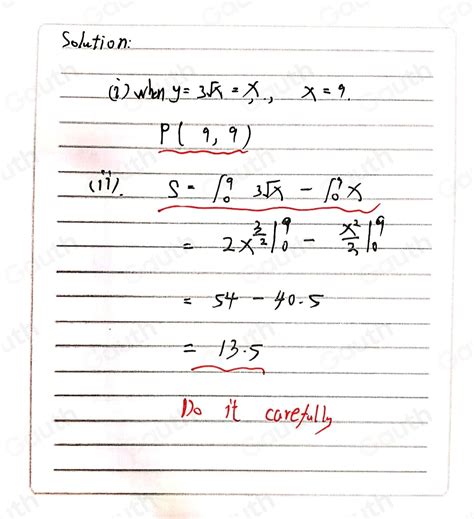 Solution:
(i) when y = 3√x = x, x = 9.
P ( 9, 9 )
(ii). S = ∫₀⁹ 3√x - ∫₀⁹ x
= 2x^(3/2) |₀⁹ - x²/2 |₀⁹
= 54 - 40.5
= 13.5
Do it carefully